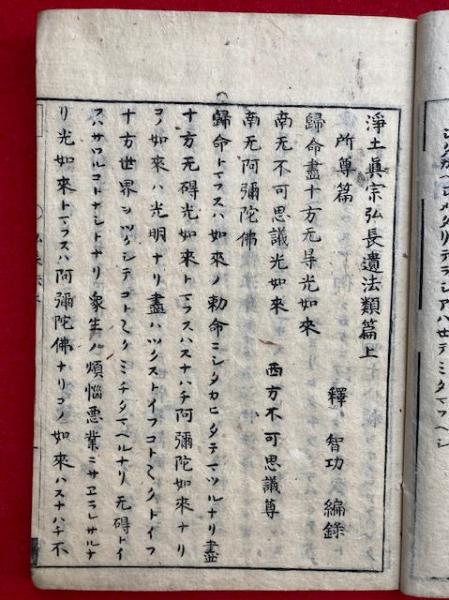 淨土眞宗弘長遺法類篇上
所尊篇　釋　智功　編錄
歸命盡十方无㝵光如來
南无不可思議光如來　西方不可思議尊
南无阿彌陀佛
歸命トマフスハ如來ノ勅命ニシタカヒタテマツルナリ盡
十方无碍光如來トマフスハスナハチ阿彌陀如來ナリ
コノ如來ハ光明ナリ盡ハツクストイフコト〱クトイフ
十方世界ヲツクシテコト〱クミチタマヘルナリ无碍トイ
フハサワルコトナシトナリ衆生ノ煩惱悪業ニサエラレサルナ
リ光如來トマフスハ阿彌陀佛ナリコノ如來ハスナハチ不